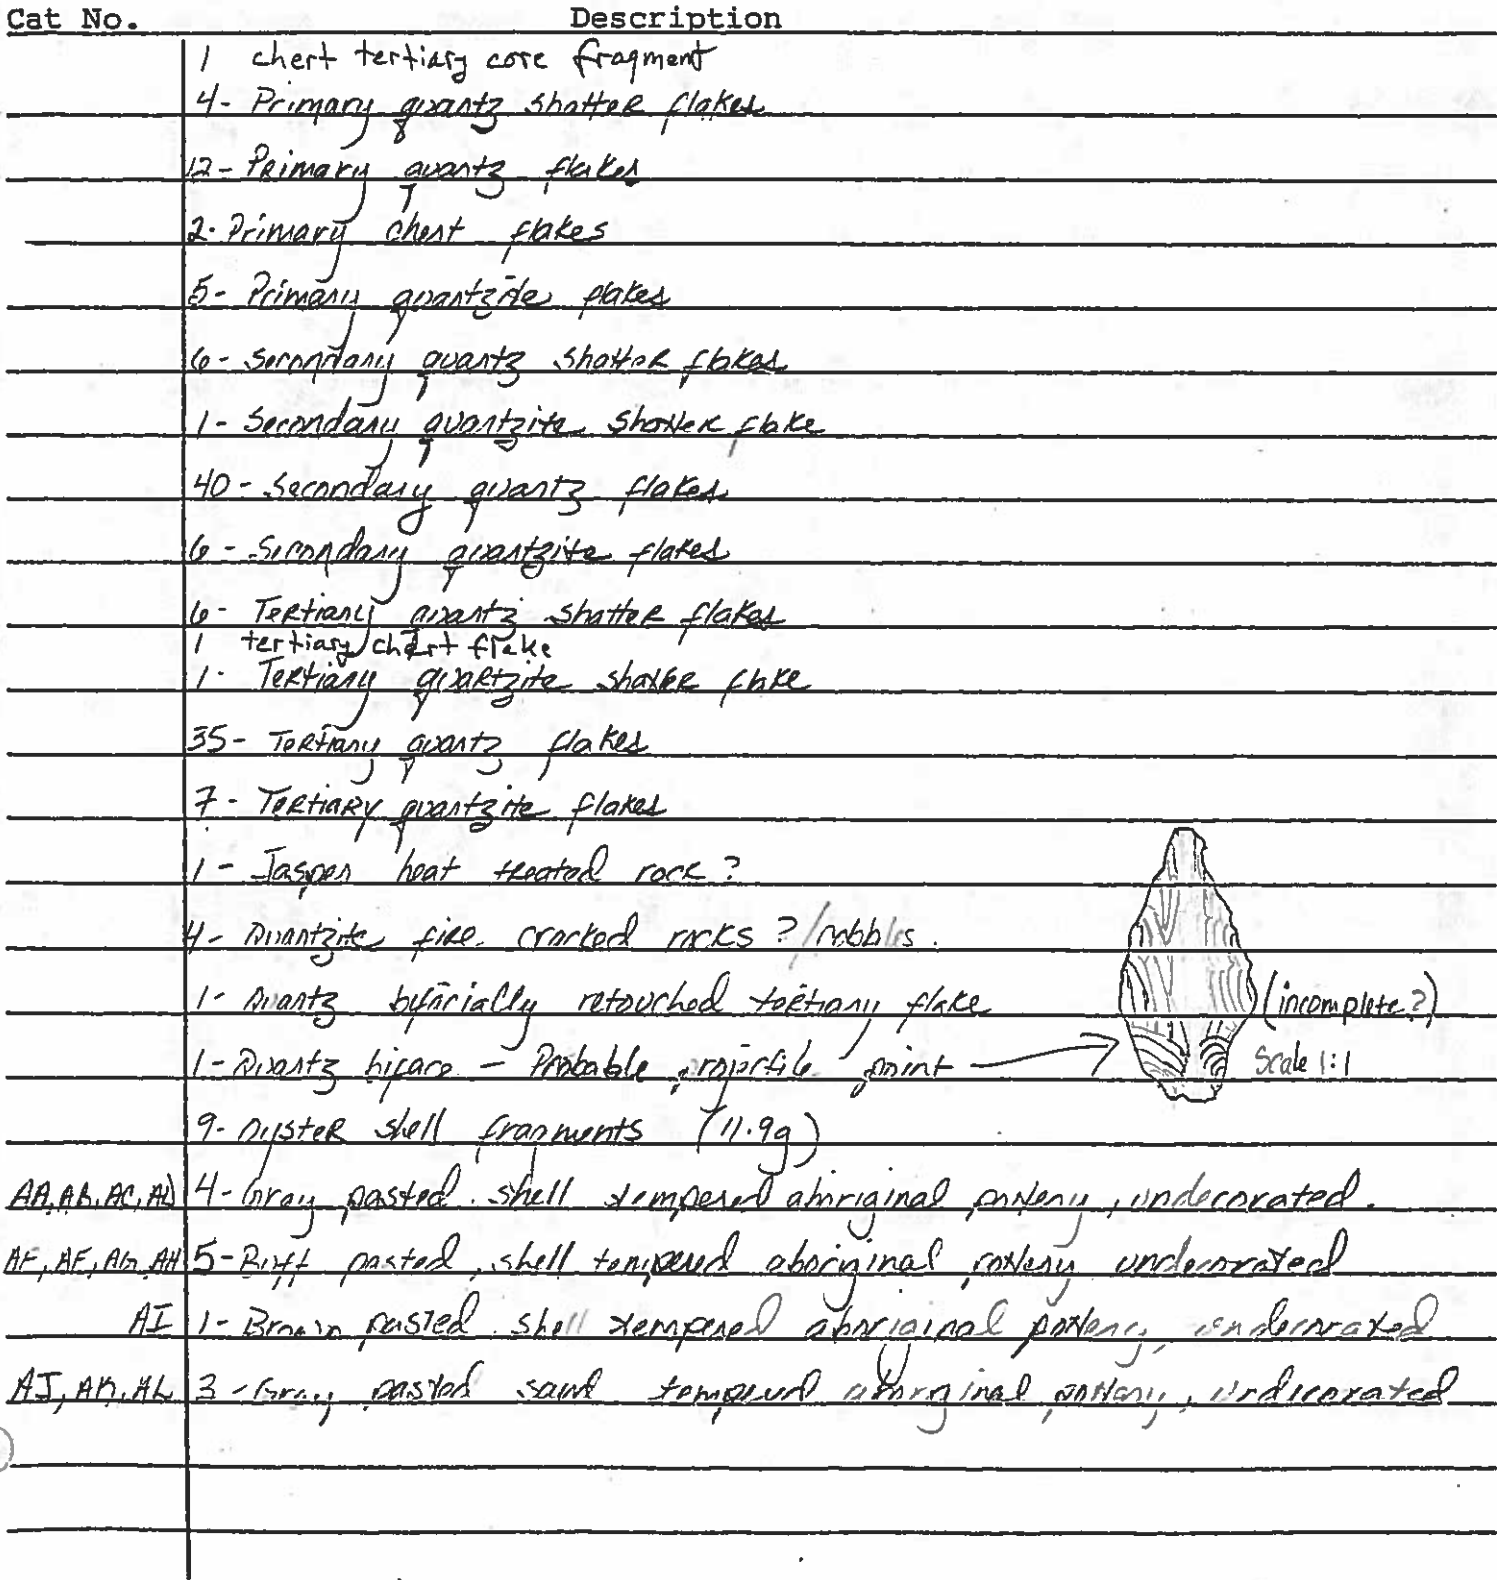 Cat No. Description
1 chert tertiary core fragment
4- Primary quartz shatter flakes
12- Primary quartz flakes
2- Primary chert flakes
5- Primary quartzite flakes
6- Secondary quartz shatter flakes
1- Secondary quartzite shatter flake
40- Secondary quartz flakes
6- Secondary quartzite flakes
6- Tertiary quartz shatter flakes
1 tertiary chert flake
1- Tertiary quartzite shatter flake
35- Tertiary quartz flakes
7- Tertiary quartzite flakes
1- Jasper heat treated rock?
4- Quartzite fire cracked rocks?/cobbles.
1- Quartz bifacially retouched tertiary flake
(incomplete?)
1- Quartz biface – Probable projectile point
Scale 1:1
9- Oyster shell fragments (11.9g)
AA, AB, AC, AD 4- Gray pasted, shell tempered aboriginal pottery, undecorated.
AF, AG, AH 5- Buff pasted, shell tempered aboriginal pottery undecorated
AI 1- Brown pasted shell tempered aboriginal pottery, undecorated
AJ, AK, AL 3- Gray pasted sand tempered aboriginal pottery, undecorated